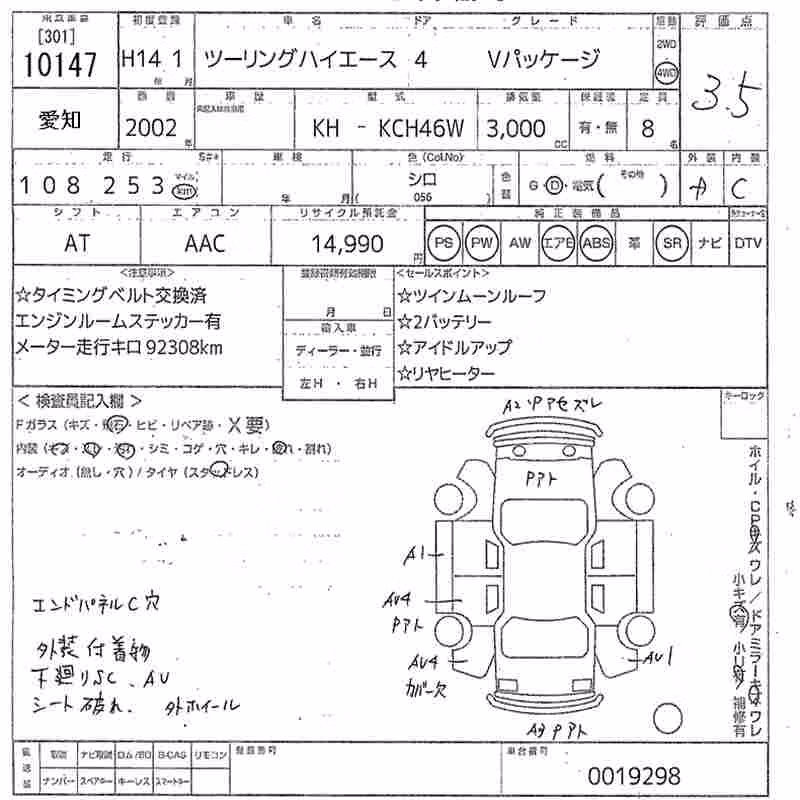 [301] 初度登録 車名 ドア グレード 駆動 評価点
10147 H14 1 年 月 ツーリングハイエース 4 Vパッケージ 2WD 4WD 3.5
愛知 車歴 型式 排気量 定員
2002 年 KH - KCH46W 3,000 CC 有・無 8 名
走行 車検 色(Col.No) 燃料 外装 内装
108 253 マイル km 年 月 シロ 056 G・D・電気( その他 ) A C
シフト エアコン リサイクル預託金 純正装備品
AT AAC 14,990 円 PS PW AW エアB ABS 革 SR ナビ DTV
<注意事項> <セールスポイント>
☆タイミングベルト交換済 月 日 ☆ツインムーンルーフ
エンジンルームステッカー有 輸入車 ☆2バッテリー
メーター走行キロ92308km ディーラー・並行 ☆アイドルアップ
左H ・ 右H ☆リヤヒーター
< 検査員記入欄 > キーロック
Fガラス (キズ・飛石・ヒビ・リペア跡・X要)
内装 (キズ・汚れ・シミ・コゲ・穴・キレ・破れ・割れ)
オーディオ (無し・穴) / タイヤ (スタッドレス)
A2・Pアセズレ
Pアト
A1
AV4
Pアト
AV4
カバー欠
AV1
A3 Pアト
エンドパネルC穴
外装付着物
下廻りSC、AU
シート破れ、外ホイール
取説 ナビ取説 ロム/BD B-CAS リモコン 登録番号 車台番号
ナンバー スペアキー キーレス スマートキー 0019298